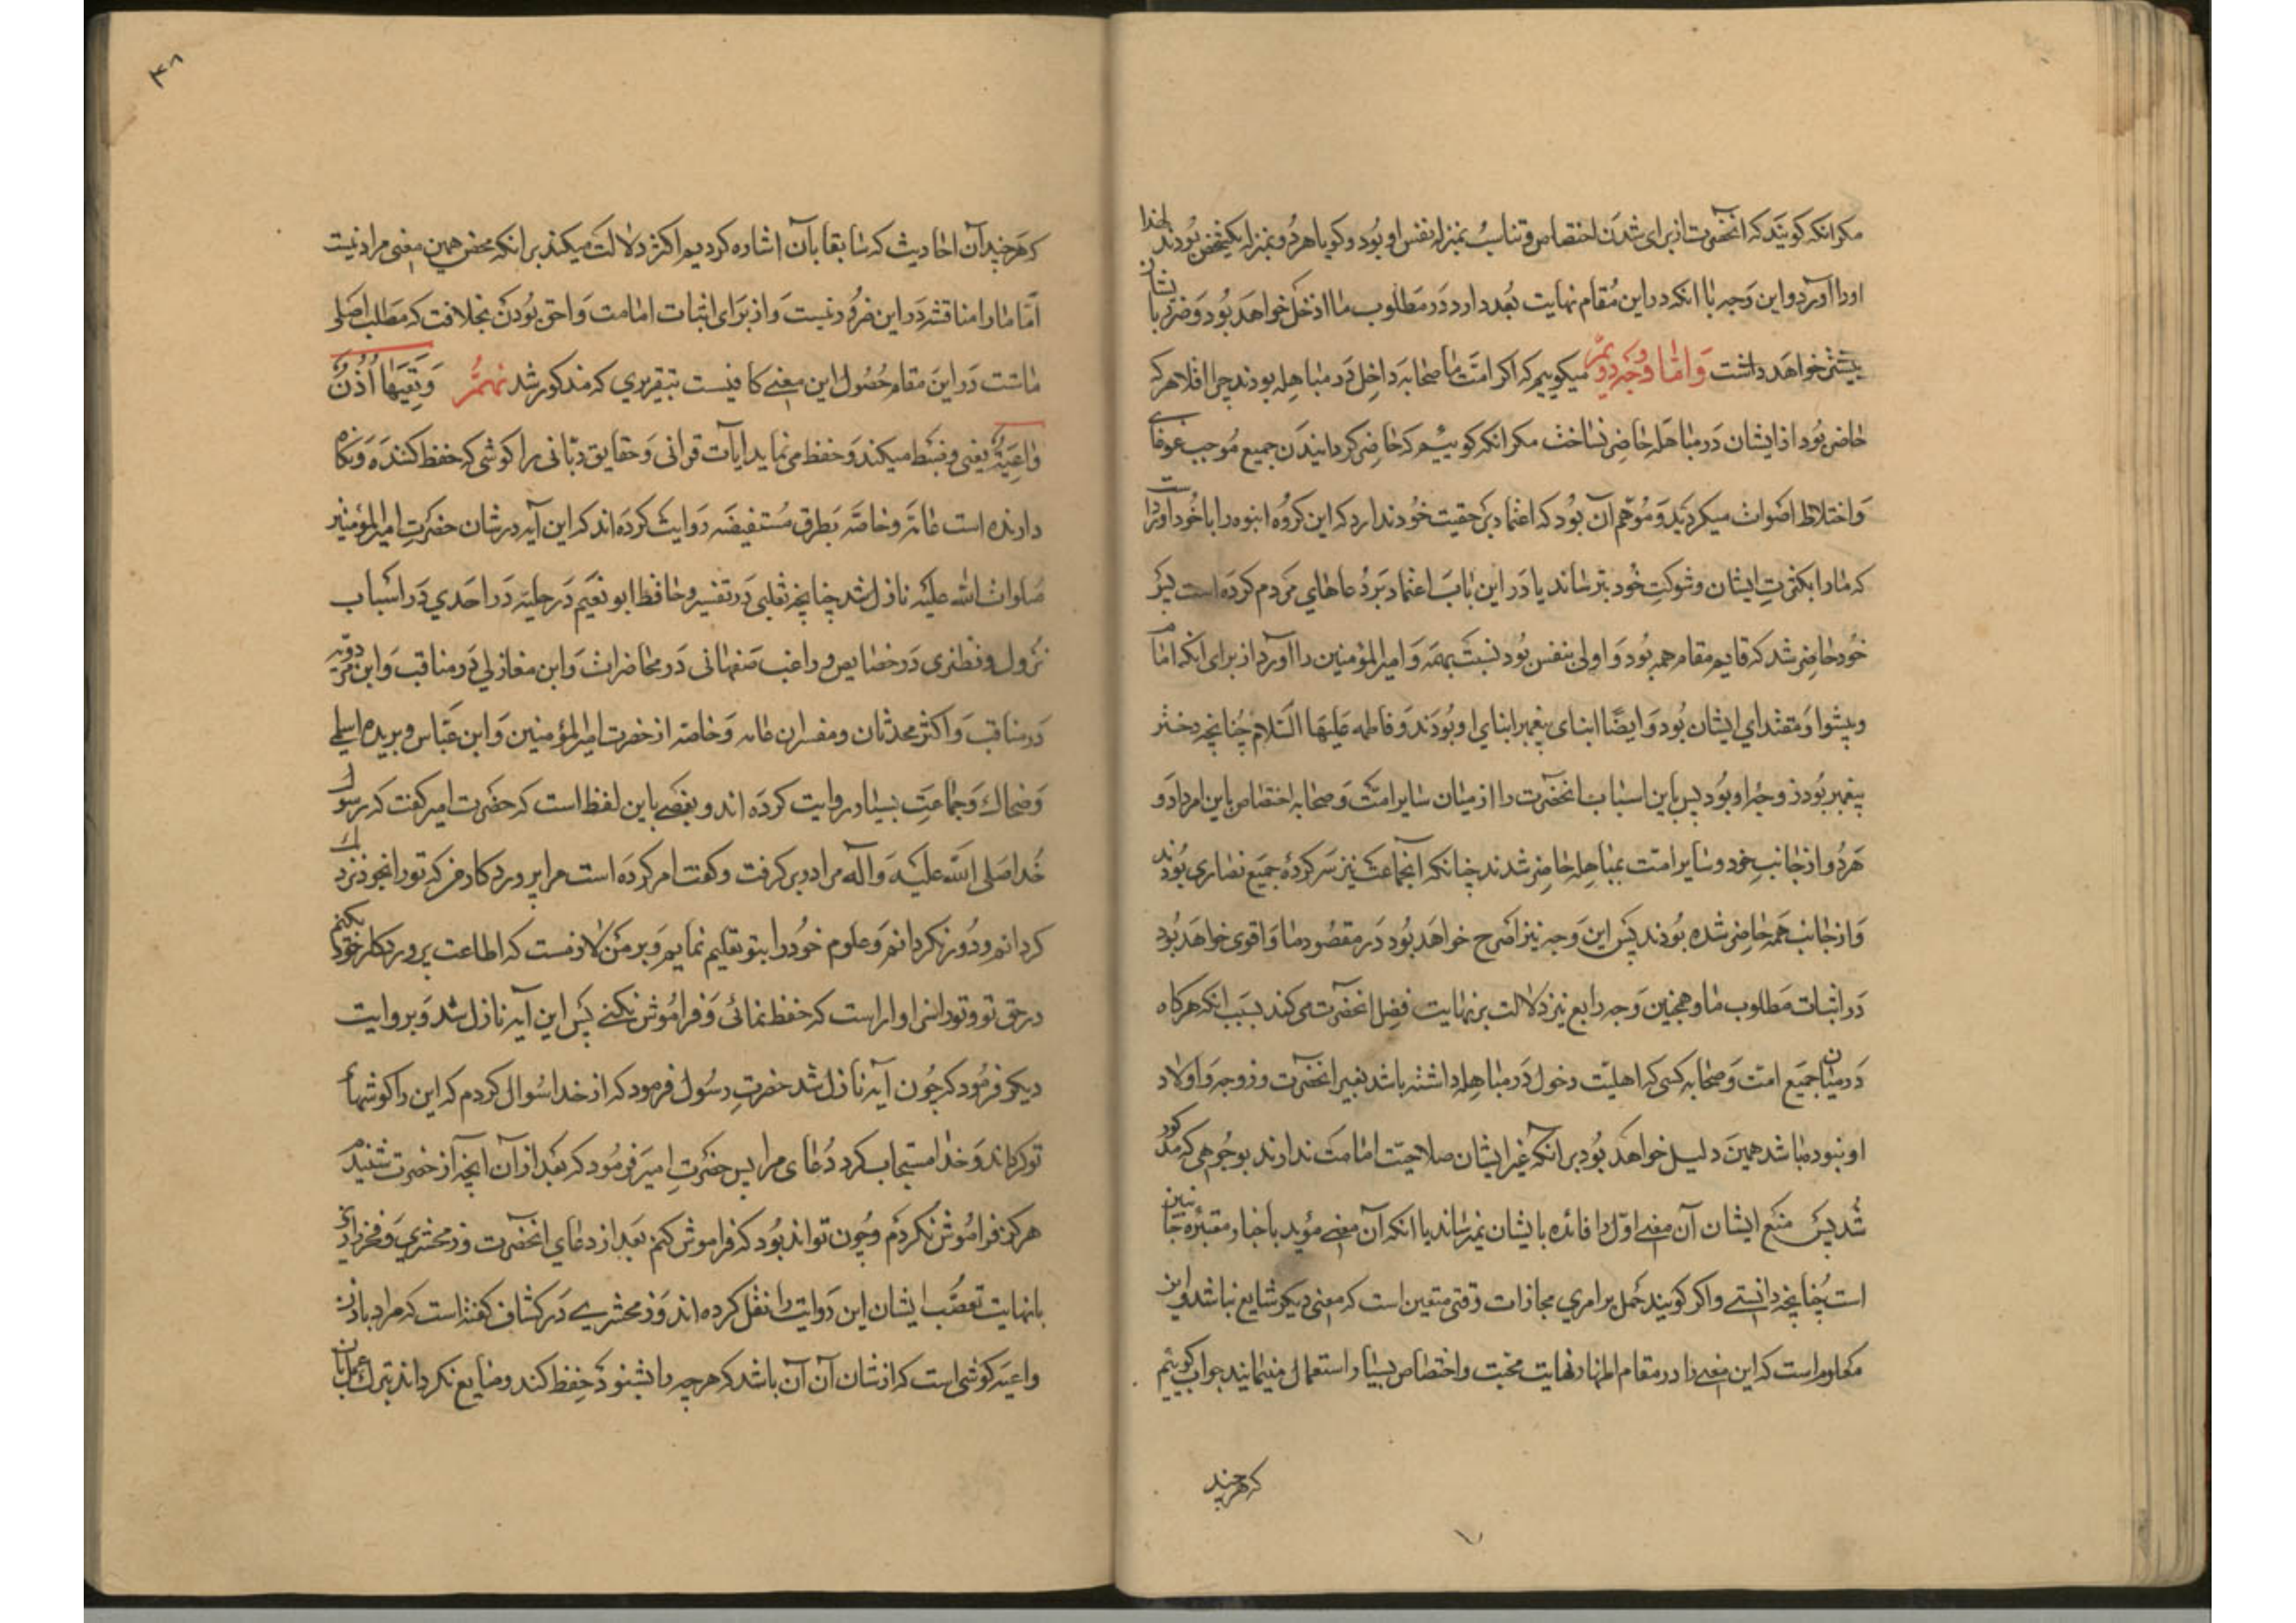 مکر انکه کویند که انحضرت از برای شدت اختصاص و تناسب بمنزله نفس او بود و کویا هر دو بمنزله یکشخص بودند لهذا
اورا آورد و این وجه با انکه در این مقام نهایت بعد دارد در مطلوب ما ادخل خواهد بود و ضرر بایشان
بیشتر خواهد داشت و اما وجه دویّم میکوییم که اکر امت یا صحابه داخل در مباهله بودند چرا اقلا هر که
حاضر بود از ایشان در مباهله حاضر نساخت مکر انکه کوییم که حاضر کردانیدن جمیع موجب غوغای
و اختلاط اصوات میکردید و موهم آن بود که اعتماد بر حقیت خود ندارد که این کروه انبوه را با خود آورده است
که ما را بکثرت ایشان و شوکت خود بترساند یا در این باب اعتماد بر دعاهای مردم کرده است لیکن
خود حاضر شد که قایم مقام همه بود و اولی بنفس بود نسبت بهمه و امیر المؤمنین را آورد از برای انکه امام
و پیشوا و مقتدای ایشان بود و ایضا ابنای پیغمبر ابنای او بودند و فاطمه علیها السّلام چنانچه دختر
پیغمبر بود زوجه او بود پس باین اسباب انحضرت را از میان سایر امت و صحابه اختصاص باین امر داد و
هر دو از جانب خود و سایر امت بمباهله حاضر شدند چنانکه آنجماعت نیز سر کرده جمیع نصاری بودند
و از جانب همه حاضر شده بودند پس این وجه نیز اصرح خواهد بود در مقصود ما و اقوی خواهد بود
در اثبات مطلوب ما و همچنین وجه رابع نیز دلالت بر نهایت فضل انحضرت می کند بسبب انکه هر کاه
در میان جمیع امت و صحابه کسی که اهلیت دخول در مباهله داشته باشد بغیر انحضرت و زوجه و اولاد
او نبوده باشد همین دلیل خواهد بود بر انکه غیر ایشان صلاحیت امامت ندارند بوجوهی که مذکور
شد پس منع ایشان آن معنی اوّل را فائده بایشان نمیرساند با انکه آن معنی مؤید باخبار معتبره جانبین
است چنانچه دانستی و اکر کویند حمل بر امری مجازات وقتی متعین است که معنی دیکر شایع نباشد و این
معلوم است که این معنی را در مقام اظهار نهایت محبت و اختصاص بسیار استعمال مینمایند جواب کوییم
که هر چند
۴۸
که هر چند آن احادیث که سابقا بآن اشاره کردیم اکثر دلالت میکند بر انکه محض همین معنی مراد نیست
امّا ما را مناقشه در این ضرور نیست و از برای اثبات امامت و احق بودن بخلافت که مطلب اصلی
ماست در این مقام حصول این معنی کافیست بتقریری که مذکور شد نهمّ وَتَعِیَهَا اُذُنٌ
وٰاعِیَةٌ یعنی و ضبط میکند و حفظ می نماید ایات قرانی و حقایق ربّانی را کوشی که حفظ کننده و نکاه
دارنده است عامّه و خاصّه بطرق مستفیضه روایت کرده اند که این آیه در شان حضرت امیر المؤمنین
صلوات الله علیه نازل شد چنانچه ثعلبی در تفسیر و حافظ ابو نعیم در حلیه و واحدی در اسباب
نزول و نطنزی در خصایص و راغب صفهانی در محاضرات و ابن مغازلی در مناقب و ابن مردویه
در مناقب و اکثر محدثان و مفسران عامه و خاصه از حضرت امیر المؤمنین و ابن عبّاس و بریده اسلمی
و ضحاک و جماعت بسیار روایت کرده اند و بعضی باین لفظ است که حضرت امیر کفت که رسول
خدا صلی الله علیه و آله مرا در بر کرفت و کفت امر کرده است مرا پروردکار من که تو را بخود نزدیک
کردانم و دور نکردانم و علوم خود را بتو تعلیم نمایم و بر من لازمست که اطاعت پروردکار خود بکنم
در حق تو و تو را سزاوار است که حفظ نمائی و فراموش نکنی پس این آیه نازل شد و بروایت
دیکر فرمود که چون آیه نازل شد حضرت رسول فرمود که از خدا سؤال کردم که این را کوشهای
تو کرداند و خدا مستجاب کرد دعای مرا پس حضرت امیر فرمود که بعد از آن آنچه از حضرت شنیدم
هرکز فراموش نکردم و چون تواند بود که فراموش کنم بعد از دعای انحضرت و زمخشری و فخر رازی
با نهایت تعصّب ایشان این روایت را نقل کرده اند و زمخشری در کشاف کفته است که مراد باذن
واعیه کوشی است که از شان آن آن باشد که هر چه را بشنود حفظ کند و ضایع نکرداند بترک عمل بآن